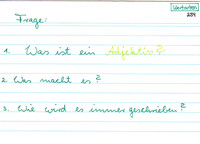 Wortarten
204
Frage:
1. Was ist ein Adjektiv?
2. Was macht es?
3. Wie wird es immer geschrieben?